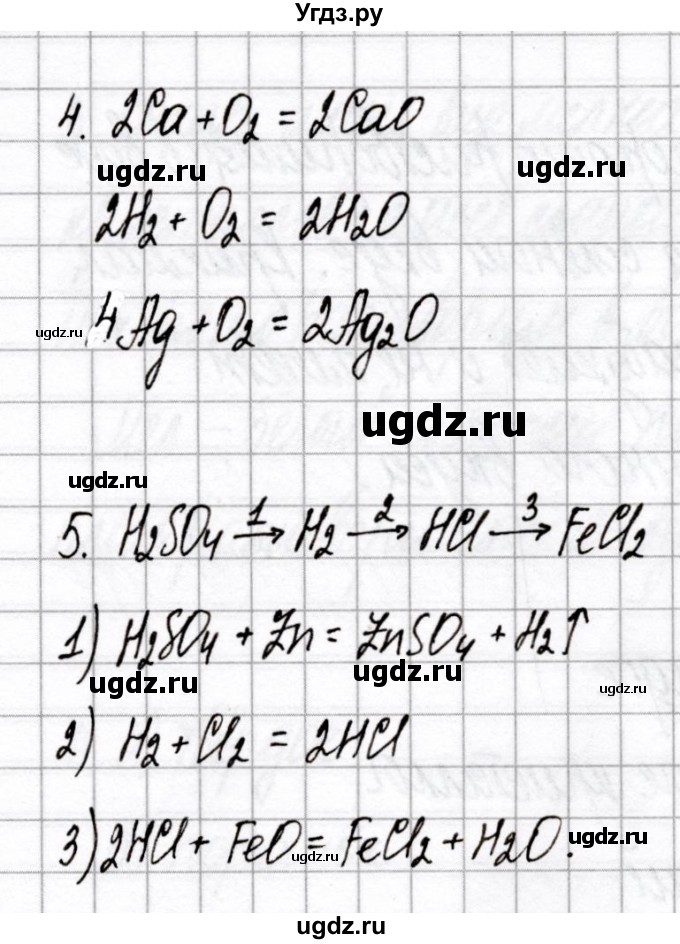 Угдз.ру
4. 2Ca + O₂ = 2CaO
ugdz.ru
ugdz.ru
2H₂ + O₂ = 2H₂O
ugdz.ru
4Ag + O₂ = 2Ag₂O
ugdz.ru
ugdz.ru
5. H₂SO₄ →¹ H₂ →² HCl →³ FeCl₂
1) H₂SO₄ + Zn = ZnSO₄ + H₂↑
ugdz.ru
ugdz.ru
ugdz.ru
2) H₂ + Cl₂ = 2HCl
3) 2HCl + FeO = FeCl₂ + H₂O.
ugdz.ru
ugdz.ru
ugdz.ru